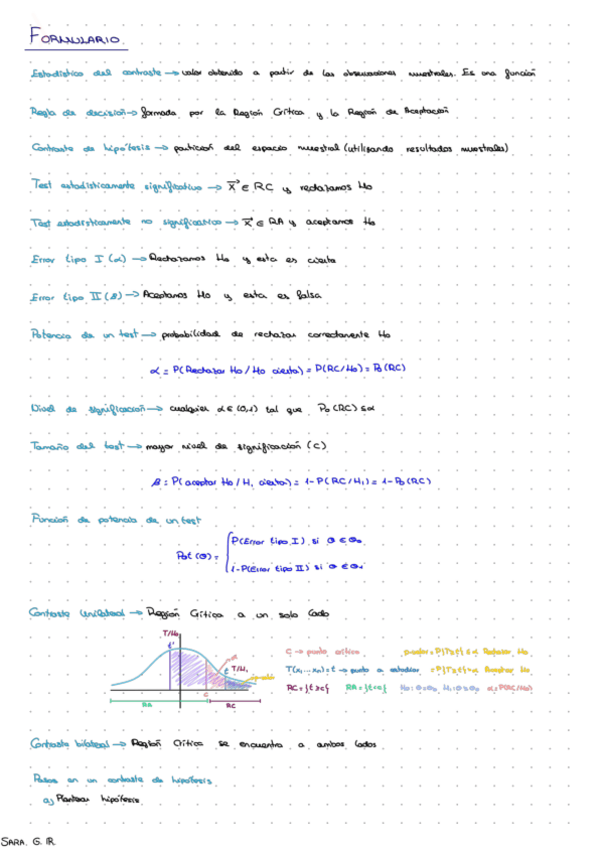 FORMULARIO
Estadístico del contraste → valor obtenido a partir de las observaciones muestrales. Es una función
Regla de decisión → formada por la Región Crítica y la Región de Aceptación
Contraste de hipótesis → partición del espacio muestral (utilizando resultados muestrales)
Test estadísticamente significativo → X⃗ ∈ RC y rechazamos Ho
Test estadísticamente no significativo → X⃗ ∈ RA y aceptamos Ho
Error tipo I (α) → Rechazamos Ho y esta es cierta
Error tipo II (β) → Aceptamos Ho y esta es falsa
Potencia de un test → probabilidad de rechazar correctamente Ho
α = P(Rechazar Ho / Ho cierta) = P(RC/Ho) = Po(RC)
Nivel de significación → cualquier α ∈ (0,1) tal que Po(RC) ≤ α
Tamaño del test → mayor nivel de significación (C)
β = P(aceptar Ho / H₁ cierta) = 1-P(RC/H₁) = 1-Po(RC)
Función de potencia de un test
Pot (θ) =
P(Error tipo I) si θ ∈ Θ₀
1-P(Error tipo II) si θ ∈ Θ₁
Contraste Unilateral → Región Crítica a un solo lado
T/H₀
T/H₁
C
RA
RC
C → punto crítico
T(x₁,...xₙ)=t → punto a estudiar
RC={t≥c} RA={t<c} H₀: θ=θ₀ H₁: θ>θ₀ α=P(RC/H₀)
Contraste bilateral → Región Crítica se encuentra a ambos lados
Pasos en un contraste de hipótesis
a) Plantear hipótesis
SARA. G. R.